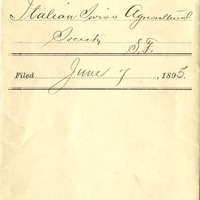 Italian Swiss Agricultural
Society
S.F.
Filed June 7, 1895.